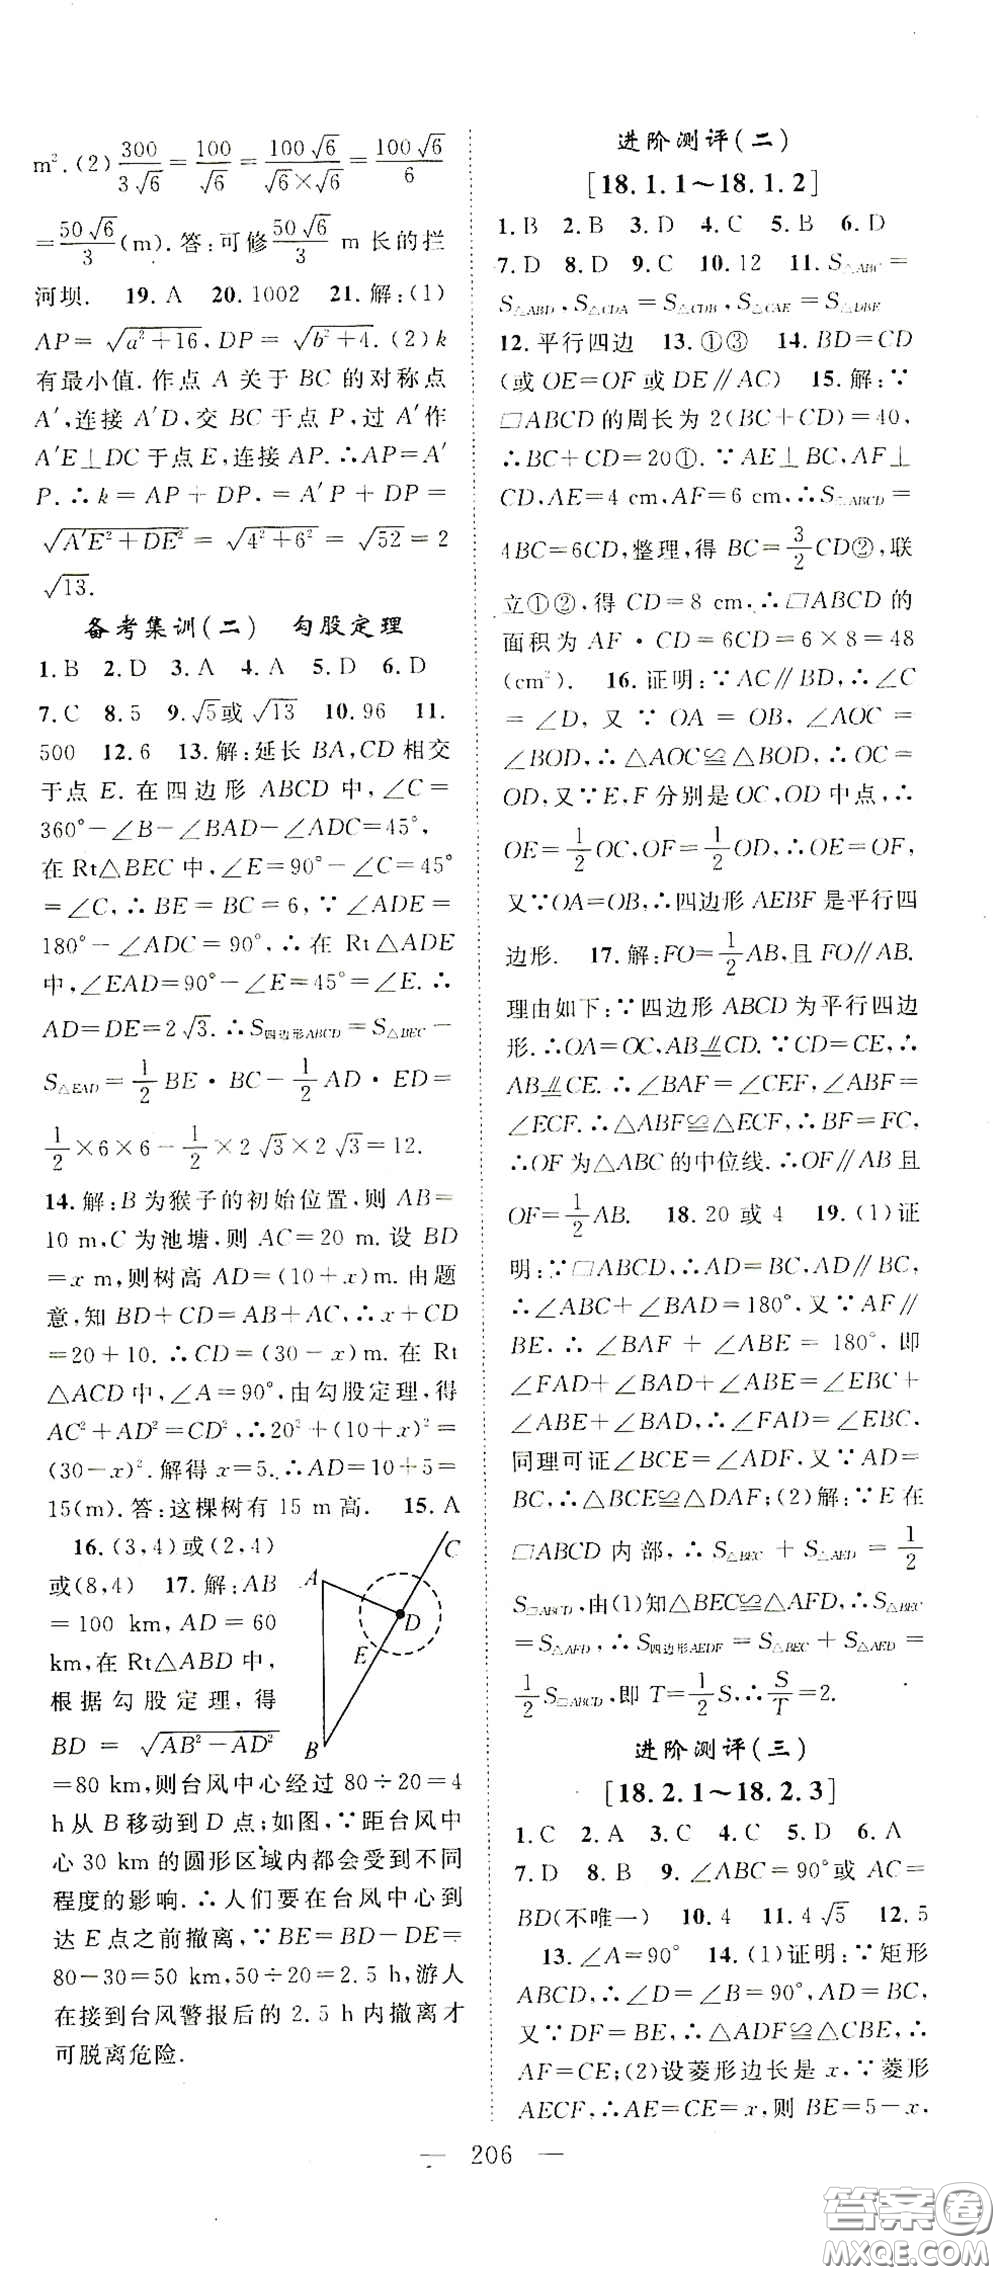 m². (2) 300/3√6 = 100/√6 = 100√6/√6×√6 = 100√6/6
= 50√6/3 (m). 答:可修 50√6/3 m 长的拦
河坝. 19. A 20. 1002 21. 解:(1)
AP=√a²+16, DP=√b²+4. (2) k
有最小值. 作点 A 关于 BC 的对称点
A′,连接 A′D,交 BC 于点 P,过 A′作
A′E⊥DC 于点 E,连接 AP. ∴AP=A′
P. ∴k=AP+DP.=A′P+DP=
√A′E²+DE²=√4²+6²=√52=2
√13.
备考集训(二) 勾股定理
1. B 2. D 3. A 4. A 5. D 6. D
7. C 8. 5 9. √5或√13 10. 96 11.
500 12. 6 13. 解:延长 BA,CD 相交
于点 E. 在四边形 ABCD 中,∠C=
360°-∠B-∠BAD-∠ADC=45°,
在 Rt△BEC 中,∠E=90°-∠C=45°
=∠C,∴BE=BC=6,∵∠ADE=
180°-∠ADC=90°,∴在 Rt△ADE
中,∠EAD=90°-∠E=45°=∠E. ∴
AD=DE=2√3. ∴S四边形ABCD=S△BEC-
S△EAD=1/2 BE·BC-1/2 AD·ED=
1/2×6×6-1/2×2√3×2√3=12.
14. 解:B 为猴子的初始位置,则 AB=
10 m,C 为池塘,则 AC=20 m. 设 BD
=x m,则树高 AD=(10+x)m. 由题
意,知 BD+CD=AB+AC,∴x+CD
=20+10. ∴CD=(30-x)m. 在 Rt
△ACD 中,∠A=90°,由勾股定理,得
AC²+AD²=CD²,∴20²+(10+x)²=
(30-x)². 解得 x=5. ∴AD=10+5=
15(m). 答:这棵树有 15 m 高. 15. A
16. (3,4)或(2,4)
或(8,4) 17. 解:AB
=100 km,AD=60
km,在 Rt△ABD 中,
根据勾股定理,得
BD=√AB²-AD²
A
B
C
D
E
=80 km,则台风中心经过 80÷20=4
h 从 B 移动到 D 点;如图,∵距台风中
心 30 km 的圆形区域内都会受到不同
程度的影响. ∴人们要在台风中心到
达 E 点之前撤离,∵BE=BD-DE=
80-30=50 km,50÷20=2.5 h,游人
在接到台风警报后的 2.5 h 内撤离才
可脱离危险.
进阶测评(二)
[18.1.1～18.1.2]
1. B 2. B 3. D 4. C 5. B 6. D
7. D 8. D 9. C 10. 12 11. S△ABC=
S△ABD,S△CDA=S△CDB,S△CAE=S△DBE
12. 平行四边 13. ①③ 14. BD=CD
(或 OE=OF 或 DE∥AC) 15. 解:∵
□ABCD 的周长为 2(BC+CD)=40,
∴BC+CD=20①. ∵AE⊥BC,AF⊥
CD,AE=4 cm,AF=6 cm,∴S□ABCD=
4BC=6CD,整理,得 BC=3/2 CD②,联
立①②,得 CD=8 cm,∴□ABCD 的
面积为 AF·CD=6CD=6×8=48
(cm²). 16. 证明:∵AC∥BD,∴∠C
=∠D,又∵OA=OB,∠AOC=
∠BOD,∴△AOC≌△BOD,∴OC=
OD,又∵E,F 分别是 OC,OD 中点,∴
OE=1/2 OC,OF=1/2 OD,∴OE=OF,
又∵OA=OB,∴四边形 AEBF 是平行四
边形. 17. 解:FO=1/2 AB,且 FO∥AB.
理由如下:∵四边形 ABCD 为平行四边
形. ∴OA=OC,AB∥=CD. ∵CD=CE,∴
AB∥=CE. ∴∠BAF=∠CEF,∠ABF=
∠ECF. ∴△ABF≌△ECF,∴BF=FC,
∴OF 为△ABC 的中位线. ∴OF∥AB 且
OF=1/2 AB. 18. 20 或 4 19. (1)证
明:∵□ABCD,∴AD=BC,AD∥BC,
∴∠ABC+∠BAD=180°,又∵AF∥
BE. ∴∠BAF+∠ABE=180°,即
∠FAD+∠BAD=∠EBC+
∠ABE+∠BAD,∴∠FAD=∠EBC,
同理可证∠BCE=∠ADF,又∵AD=
BC,∴△BCE≌△DAF;(2)解:∵E 在
□ABCD 内部,∴S△BEC+S△AED=1/2
S□ABCD,由(1)知△BEC≌△AFD,∴S△BEC
=S△AFD,∴S四边形AEDF=S△BEC+S△AED=
1/2 S□ABCD,即 T=1/2 S,∴S/T=2.
进阶测评(三)
[18.2.1～18.2.3]
1. C 2. A 3. C 4. C 5. D 6. A
7. D 8. B 9. ∠ABC=90°或 AC=
BD(不唯一) 10. 4 11. 4√5 12. 5
13. ∠A=90° 14. (1)证明:∵矩形
ABCD,∴∠D=∠B=90°,AD=BC,
又∵DF=BE,∴△ADF≌△CBE,∴
AF=CE;(2)设菱形边长是 x,∵菱形
AECF,∴AE=CE=x,则 BE=5-x,
— 206 —
答案卷
MXQE.COM